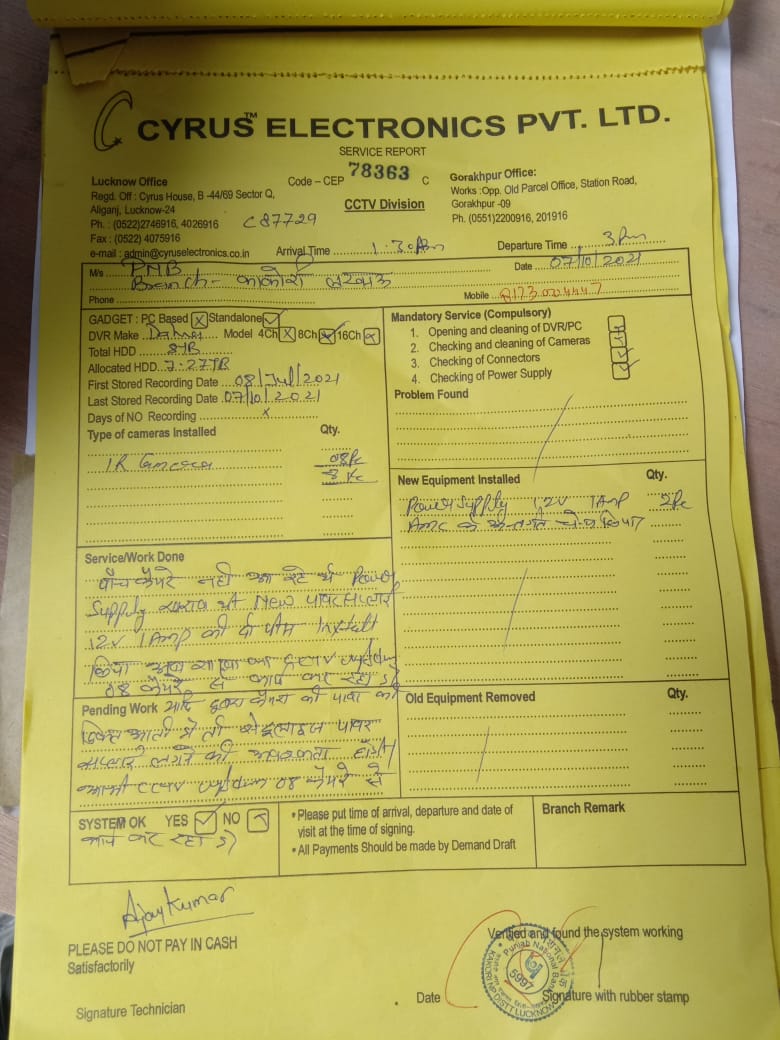 CYRUS™ ELECTRONICS PVT. LTD.
SERVICE REPORT
Lucknow Office
Regd. Off : Cyrus House, B -44/69 Sector Q,
Aliganj, Lucknow-24
Ph. : (0522)2746916, 4026916
Fax : (0522) 4075916
e-mail : admin@cyruselectronics.co.in
Code – CEP 78363 C
CCTV Division
C87729
Gorakhpur Office:
Works :Opp. Old Parcel Office, Station Road,
Gorakhpur -09
Ph. (0551)2200916, 201916
Arrival Time
Departure Time 3Pm
M/s PNB
Date 07/10/2021
Branch - काकोरी लखनऊ
Phone
Mobile
GADGET : PC Based X Standalone ✓
DVR Make Dahua Model 4Ch X 8Ch 16Ch
Total HDD 8TB
Allocated HDD 7.27TB
First Stored Recording Date 08/Jul/2021
Last Stored Recording Date 07/10/2021
Days of NO Recording x
Type of cameras Installed Qty.
IR Camera 08Pc
Mandatory Service (Compulsory)
1. Opening and cleaning of DVR/PC
2. Checking and cleaning of Cameras
3. Checking of Connectors
4. Checking of Power Supply
Problem Found
New Equipment Installed Qty.
Power Supply 12V 1Amp 2Pc
AMC के अन्तर्गत चेक किया
Service/Work Done
पाँच कैमरे नही आ रहे थे Power
Supply खराब थी New पावर सप्लाई
12V 1Amp की दो पीस Install
किया
08 कैमरे से काम कर रहा
Pending Work
पावर
सप्लाई लगाने की
CCTV 08 कैमरे से
Old Equipment Removed Qty.
SYSTEM OK YES ✓ NO
कर रहा
• Please put time of arrival, departure and date of
visit at the time of signing.
• All Payments Should be made by Demand Draft
Branch Remark
Ajay Kumar
PLEASE DO NOT PAY IN CASH
Satisfactorily
Signature Technician
Verified and found the system working
Date
Signature with rubber stamp
Punjab National Bank
5997
KAKORI NP DISTT LUCKNOW